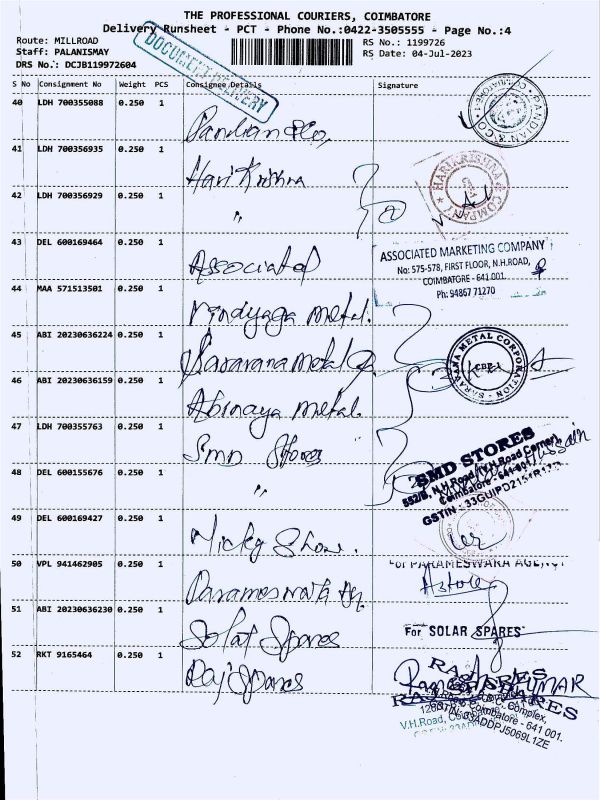 THE PROFESSIONAL COURIERS, COIMBATORE
Delivery Runsheet - PCT - Phone No.:0422-3505555 - Page No.:4
Route: MILLROAD
RS No.: 1199726
Staff: PALANISMAY
RS Date: 04-Jul-2023
DRS No.: DCJB119972604
DOCUMENT DELIVERY
S No Consignment No Weight PCS Consignee Details Signature
40 LDH 700355088 0.250 1 Pandian & Co,
PANDIAN & CO
COIMBATORE-1
41 LDH 700356935 0.250 1 Hari Krishna
HARIKRISHNA & COMPANY
42 LDH 700356929 0.250 1 "
43 DEL 600169464 0.250 1 Associated
ASSOCIATED MARKETING COMPANY
No: 575-578, FIRST FLOOR, N.H.ROAD,
COIMBATORE - 641 001.
Ph: 94867 71270
44 MAA 571513501 0.250 1 Vindyaga metal.
45 ABI 20230636224 0.250 1 Saravana metal
SARAVANA METAL CORPORATION
CBE-1
46 ABI 20230636159 0.250 1 Abinaya metal.
47 LDH 700355763 0.250 1 SMD Stores
SMD STORES
552/B, N.H.Road (V.H.Road Corner),
Coimbatore - 641 001
GSTIN : 33GUIPD2151R1
Hussain
48 DEL 600155676 0.250 1 "
49 DEL 600169427 0.250 1 Micky Show.
50 VPL 941462905 0.250 1 Parameswara Ag.
For PARAMESWARA AGENCY
51 ABI 20230636230 0.250 1 Solar Spares
For SOLAR SPARES
52 RKT 9165464 0.250 1 Raj Spares
RAJ SPARES
Complex,
V.H.Road, Coimbatore - 641 001.
GSTIN: 33ADDPJ5069L1ZE